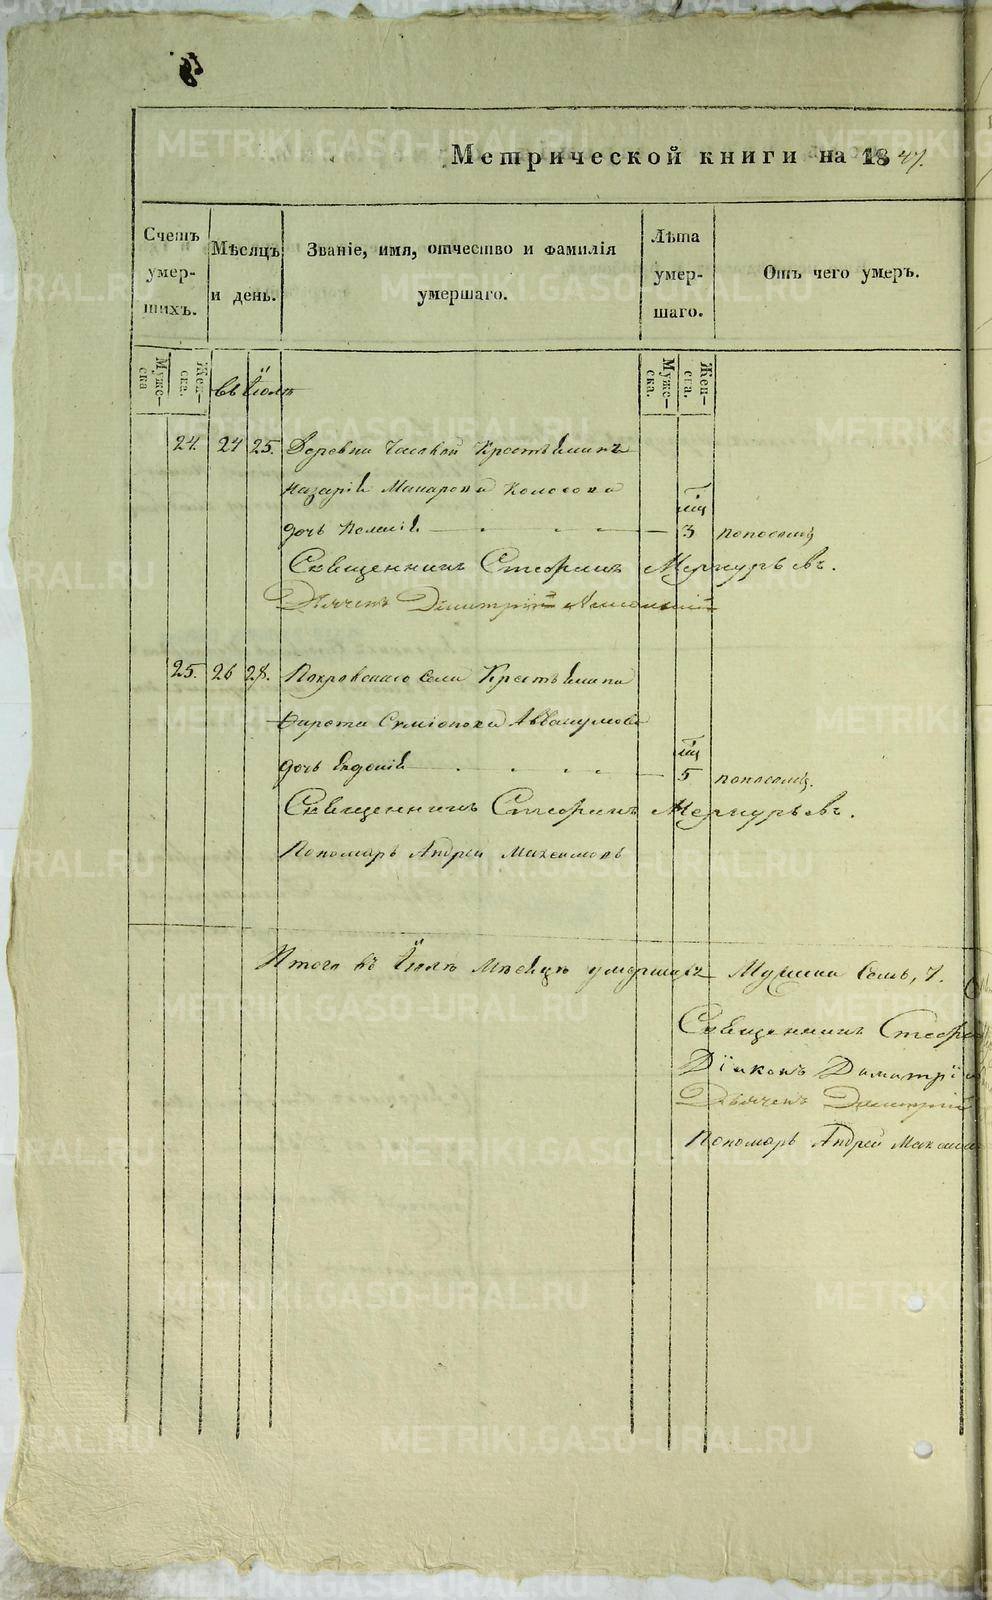 Метрической книги на 1847.
Счетъ умер-шихъ.
Мѣсяцъ и день.
Званіе, имя, отчество и фамилія умершаго.
Лѣта умер-шаго.
Отъ чего умеръ.
Муже-ска
Жен-ска.
Муже-ска.
Жен-ска.
въ Іюлѣ
24. 24 25. Деревни Часовой Крестьянина
Назарія Макарова Колосова
мц
дочь 3 поносомъ
Священникъ Стефанъ Меркурьевъ.
Дьячекъ Димитрій
25. 26 28. Покровскаго села Крестьянина
Симіонова Аввакумова
мц
дочь 5 поносомъ.
Священникъ Стефанъ Меркурьевъ.
Пономарь Андрей Максимовъ
Итого въ Іюлѣ мѣсяцѣ умершихъ Мужска семь, 7.
Священникъ Стефа
Діаконъ Димитрі
Дьячекъ Димитрій
Пономарь Андрей Максим
METRIKI.GASO-URAL.RU